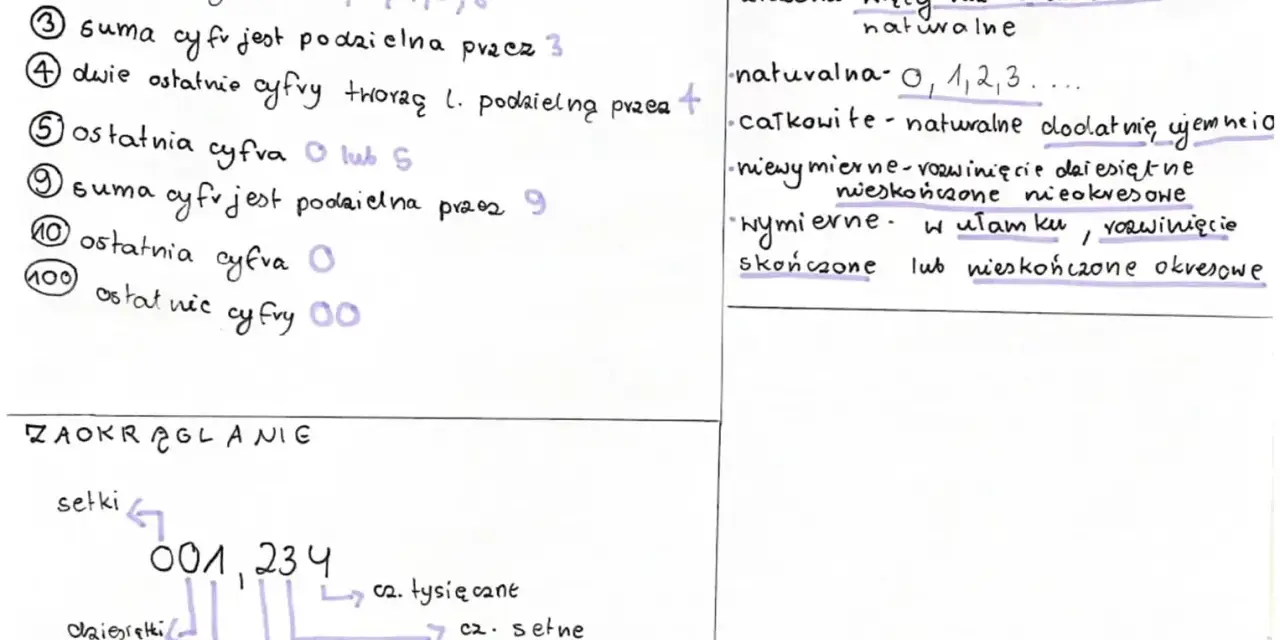 ③ suma cyfr jest podzielna przez 3
④ dwie ostatnie cyfry tworzą l. podzielną przez 4
⑤ ostatnia cyfra 0 lub 5
⑨ suma cyfr jest podzielna przez 9
⑩ ostatnia cyfra 0
(100) ostatnie cyfry 00
naturalne
·naturalna- 0, 1, 2, 3....
·całkowite - naturalne dodatnie, ujemne i 0
·niewymierne - rozwinięcie dziesiętne
nieskończone nieokresowe
·wymierne - w ułamku, rozwinięcie
skończone lub nieskończone okresowe
ZAOKRĄGLANIE
setki
001,234
cz. tysięczne
dziesiątki
cz. setne